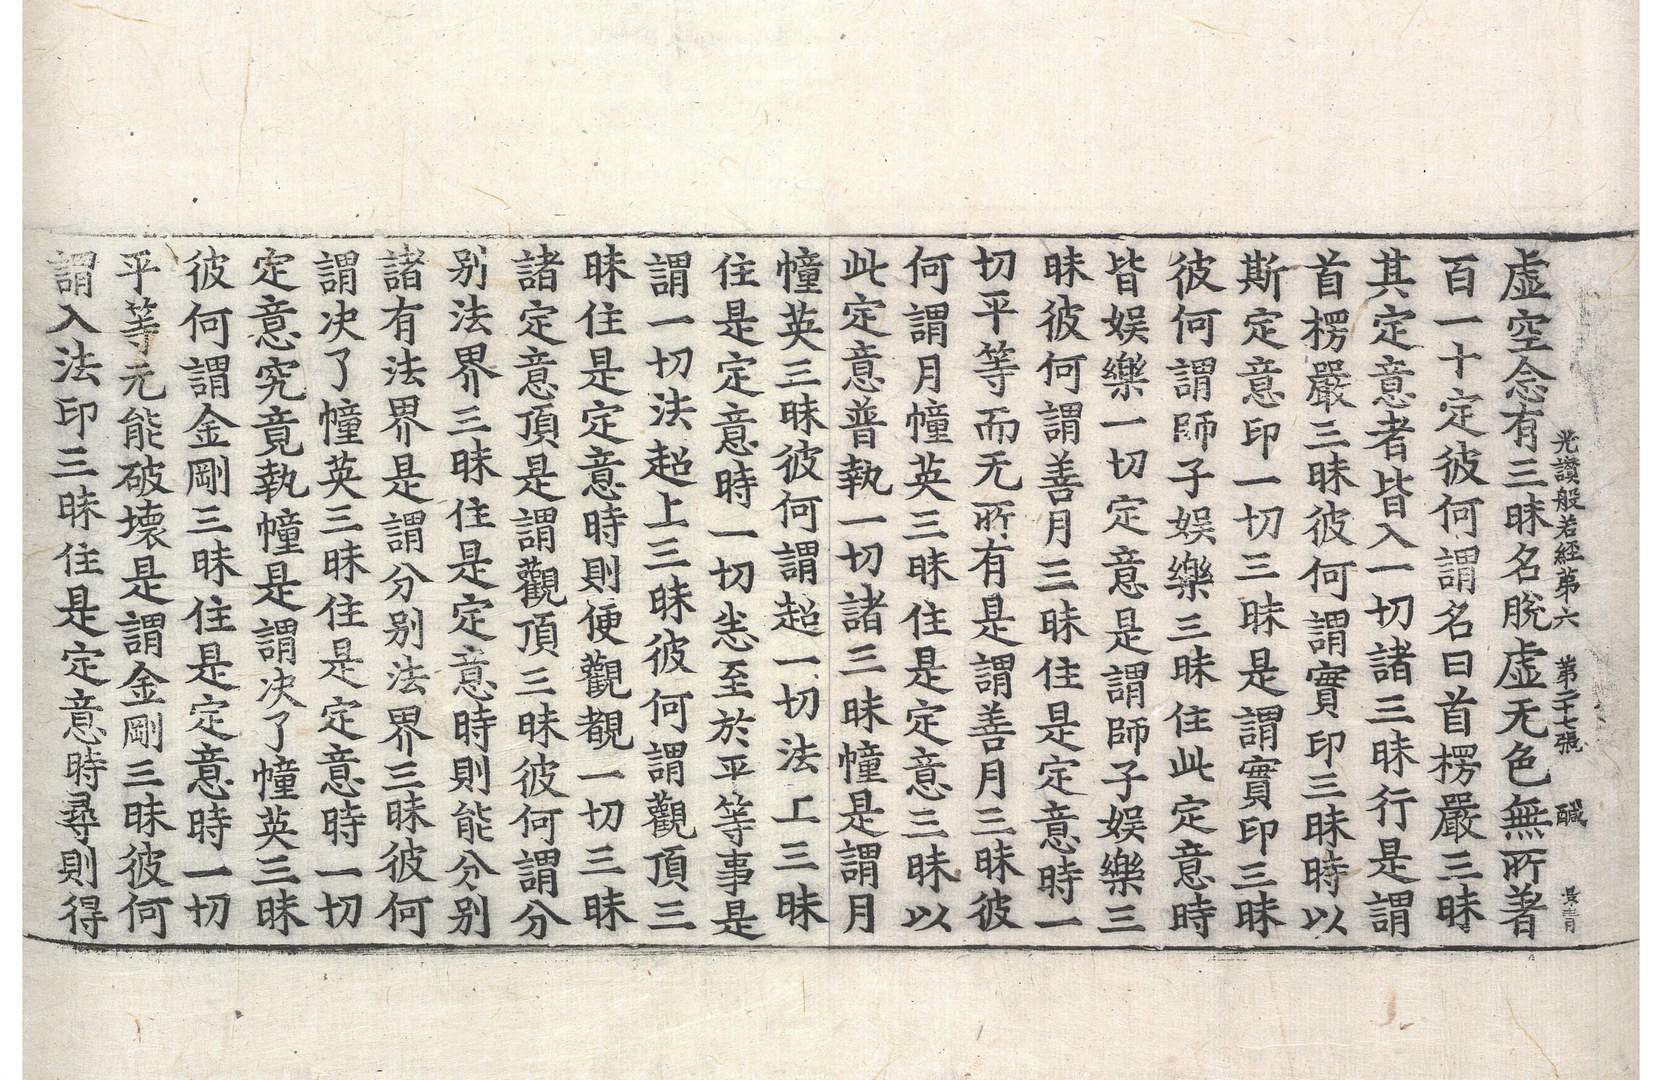 光讚般若經第六 第二十七張 醎
虛空念有三昧名脫虛无色無所著
百一十定彼何謂名曰首楞嚴三昧
其定意者皆入一切諸三昧行是謂
首楞嚴三昧彼何謂實印三昧時以
斯定意印一切三昧是謂實印三昧
彼何謂師子娛樂三昧住此定意時
皆娛樂一切定意是謂師子娛樂三
昧彼何謂善月三昧住是定意時一
切平等而无所有是謂善月三昧彼
何謂月幢英三昧住是定意三昧以
此定意普執一切諸三昧幢是謂月
幢英三昧彼何謂超一切法上三昧
住是定意時一切悉至於平等事是
謂一切法超上三昧彼何謂觀頂三
昧住是定意時則便觀覩一切三昧
諸定意頂是謂觀頂三昧彼何謂分
别法界三昧住是定意時則能分别
諸有法界是謂分别法界三昧彼何
謂决了幢英三昧住是定意時一切
定意究竟執幢是謂决了幢英三昧
彼何謂金剛三昧住是定意時一切
平等无能破壞是謂金剛三昧彼何
謂入法印三昧住是定意時尋則得